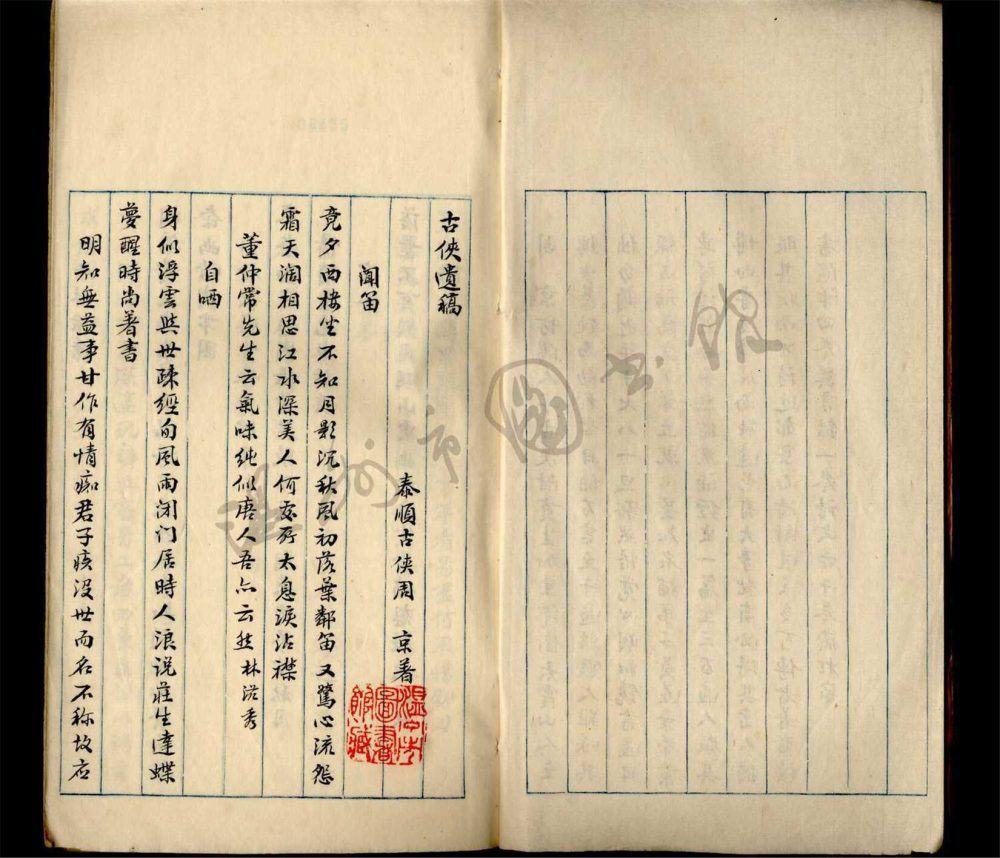 古俠遺稿
泰順古俠周 京著
聞笛
竟夕西楼坐不知月影沉秋風初落葉鄰笛又驚心流怨
霜天濶相思江水深美人何處所太息淚沾襟
董仲常先生云氣味純似唐人吾亦云然 林滋秀
自哂
身似浮雲與世疎經旬風雨闭门居時人浪说莊生達蝶
夢醒時尚著書
明知無益事甘作有情痴君子疾没世而名不称故右
温州市圖書館藏
温州市圖书館